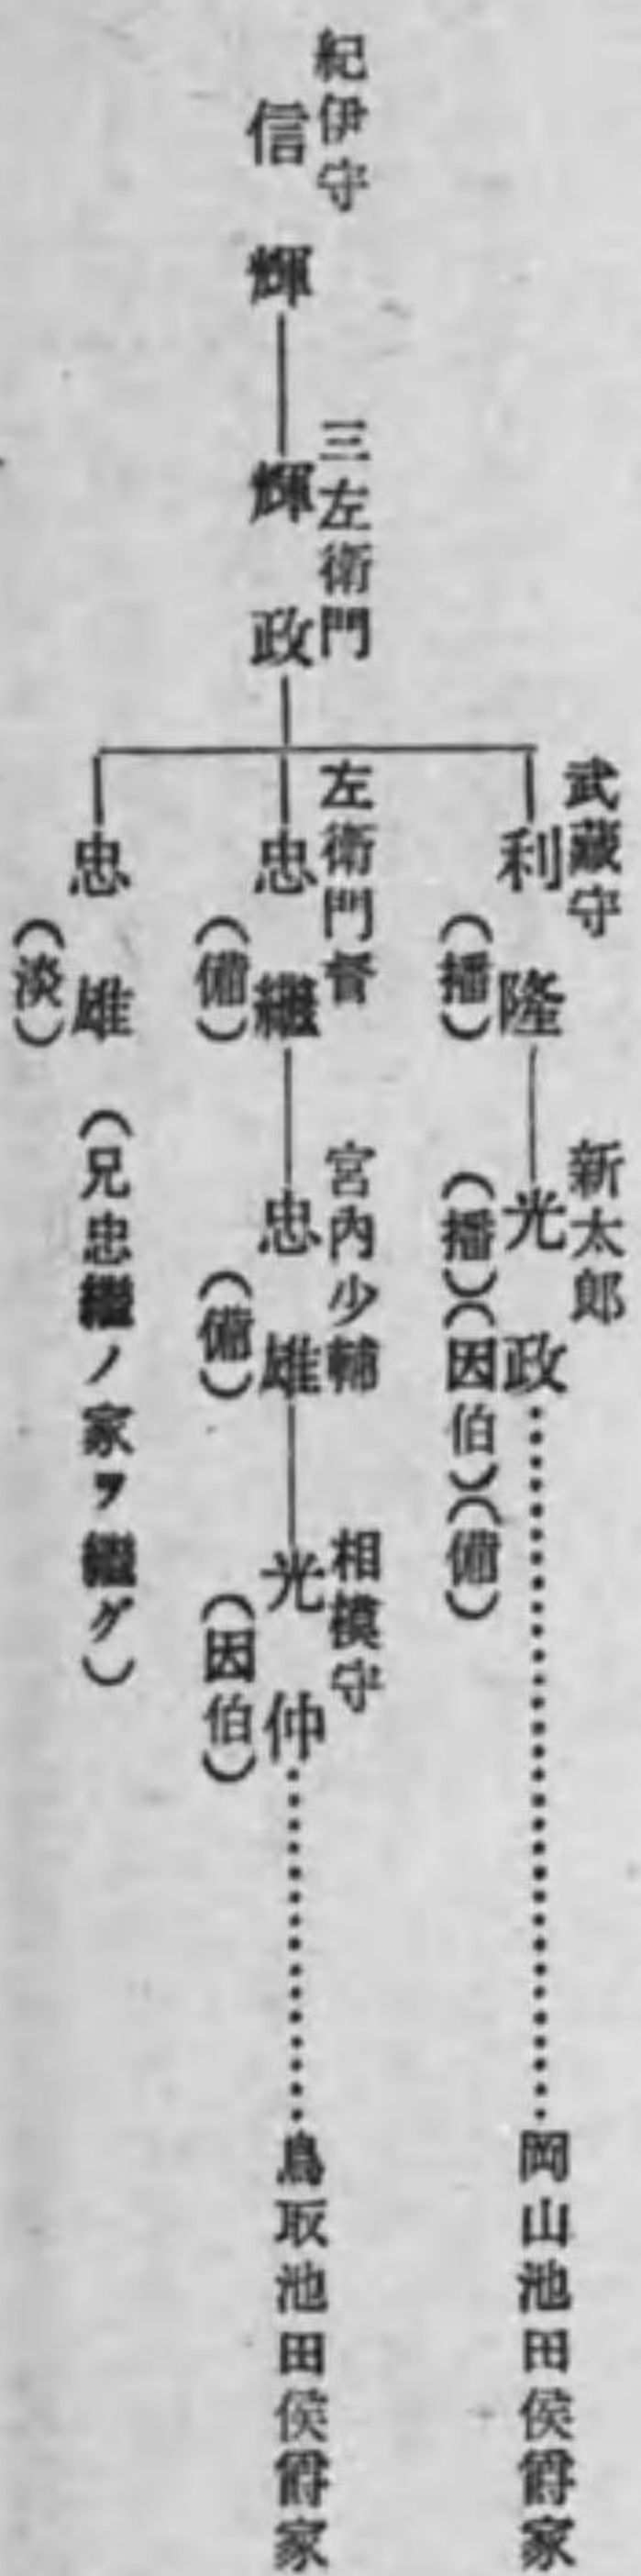 紀伊守
信輝
三左衛門
輝政
武藏守
利隆
(播)
新太郎
光政
(播)(因伯)(備)
岡山池田侯爵家
左衛門督
忠繼
(備)
宮內少輔
忠雄
(備)
相模守
光仲
(因伯)
鳥取池田侯爵家
忠雄
(淡)
(兄忠繼ノ家ヲ繼グ)